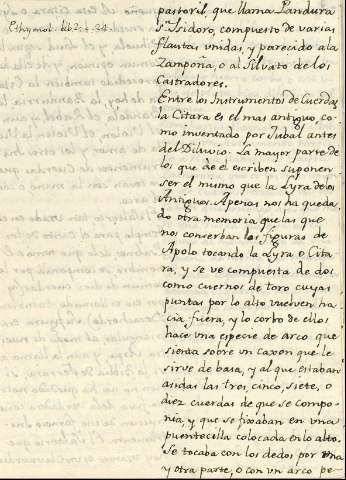 pastoril, que llama Pandura
Ethymol. lib. 2. c. 21.
Sn. Isidoro, compuesto de varias
flautas unidas, y parecido a la
Zampoña, o al silvato de los
Castradores.
Entre los Instrumentos de Cuerdas
la Citara es el mas antiguo, co-
mo inventado por Jubal antes
del Diluvio. La mayor parte de
los que de el escriben suponen
ser el mismo que la Lyra de los
Antiguos. Apenas nos ha queda-
do otra memoria que las que
nos conserban las figuras de
Apolo tocando la Lyra o Cita-
ra, y se ve compuesta de dos
como cuernos de toro cuyas
puntas por lo alto vuelven ha-
cia fuera, y lo corbo de ellos
hace vna especie de arco que
sienta sobre vn caxon que le
sirve de basa, y al que estaban
asidas las tres, cinco, siete, o
diez cuerdas de que se compo-
nia, y que se fixaban en vna
puentecilla colocada en lo alto.
Se tocaba con los dedos por vna
y otra parte, o con vn arco pe-